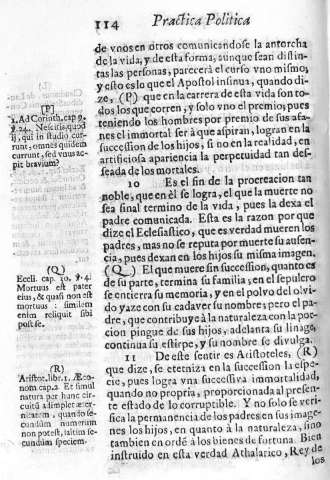 114 Practica Politica
de vnos en otros comunicandose la antorcha
de la vida, y de esta forma, aunque sean distin-
tas las personas, parecerà el curso vno mismo,
y esto es lo que el Apostol insinua, quando di-
ze, (P) que en la carrera de esta vida son to-
dos los que corren, y solo vno el premio; pues
teniendo los hombres por premio de sus afa-
nes el immortal ser à que aspiran, logran en la
succession de los hijos, si no en la realidad, en
artificiosa apariencia la perpetuidad tan des-
seada de los mortales.
10 Es el fin de la procreacion tan
noble, que en èl se logra, el que la muerte no
sea final termino de la vida, pues la dexa el
padre comunicada. Esta es la razon por que
dize el Eclesiastico, que es verdad mueren los
padres, mas no se reputa por muerte su ausen-
cia, pues dexan en los hijos su misma imagen.
(Q) El que muere sin succession, quanto es
de su parte, termina su familia, en el sepulcro
se entierra su memoria, y en el polvo del olvi-
do yaze con su cadaver su nombre; pero el pa-
dre, que contribuye à la naturaleza con la por-
cion pingue de sus hijos, adelanta su linage,
continua su estirpe, y su nombre se divulga.
11 De este sentir es Aristoteles, (R)
que dize, se eterniza en la succession la espe-
cie, pues logra vna successiva immortalidad,
quando no propria, proporcionada al presen-
te estado de lo corruptible. Y no solo se veri-
fica la permanencia de los padres en sus image-
nes los hijos, en quanto à la naturaleza, sino
tambien en ordẽ à los bienes de fortuna. Bien
instruido en esta verdad Athalarico, Rey de
los
(P)
1. Ad Corinth. cap. 9.
℣. 24. Nescitis, quod
ij, qui in studio cur-
runt, omnes quidem
currunt, sed vnus ac-
pit bravium?
(Q)
Eccli. cap. 30. ℣. 4.
Mortuus est pater
eius, & quasi non est
mortuus: similem
enim reliquit sibi
post se.
(R)
Aristot. libr. 1. Æco-
nom. cap. 2. Et simul
natura per hunc cir-
cuitũ adimplet æter-
nitatem, quando se-
cundùm numerum
non potest, saltim se-
cundùm speciem.